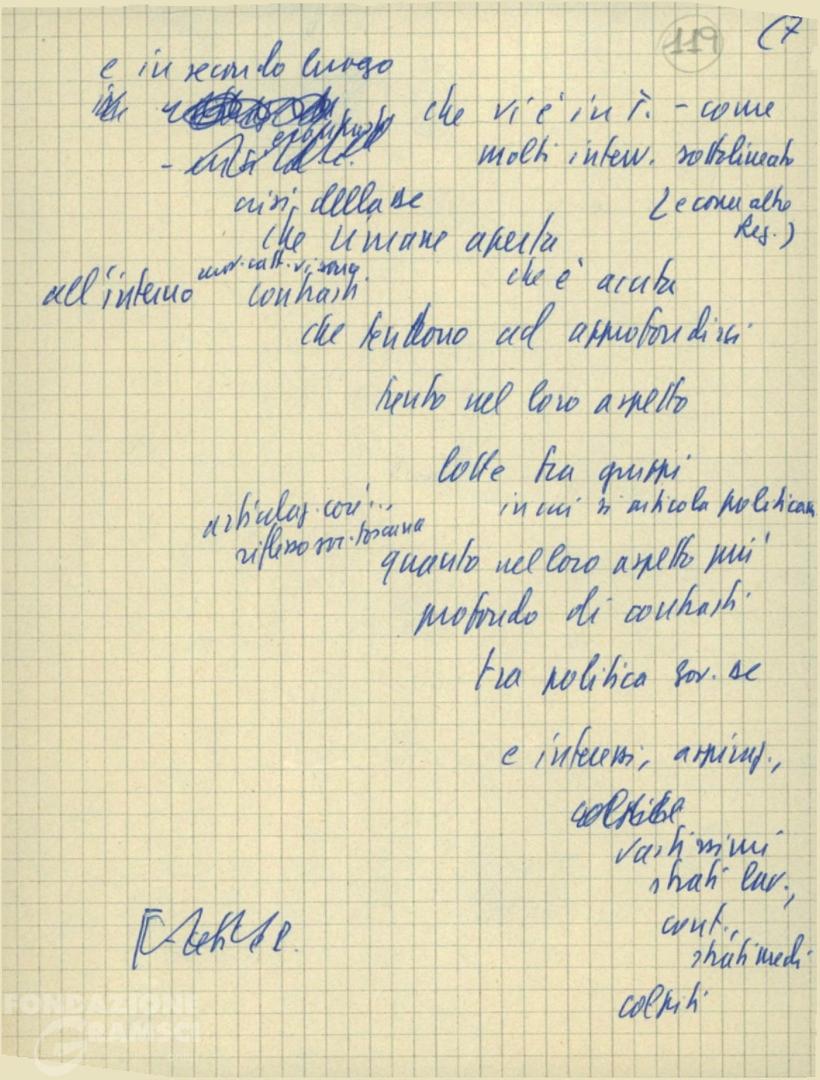 119 (7
e in secondo luogo
che vi è in T. - come
molti interv. sottolineato
(e come altre
Reg.)
crisi della DC
che rimane aperta
che è acuta
all'interno mov. catt. vi sono
contrasti
che tendono ad approfondirsi
tanto nel loro aspetto
lotte tra gruppi
in cui si articola politicam.
articolaz. cori...
riflesso soc. toscana
quanto nel loro aspetto più
profondo di contrasti
tra politica gov. DC
e interessi, aspiraz.,
vastissimi
strati lav.,
cont.,
strati medi
colpiti
FONDAZIONE
GRAMSCI